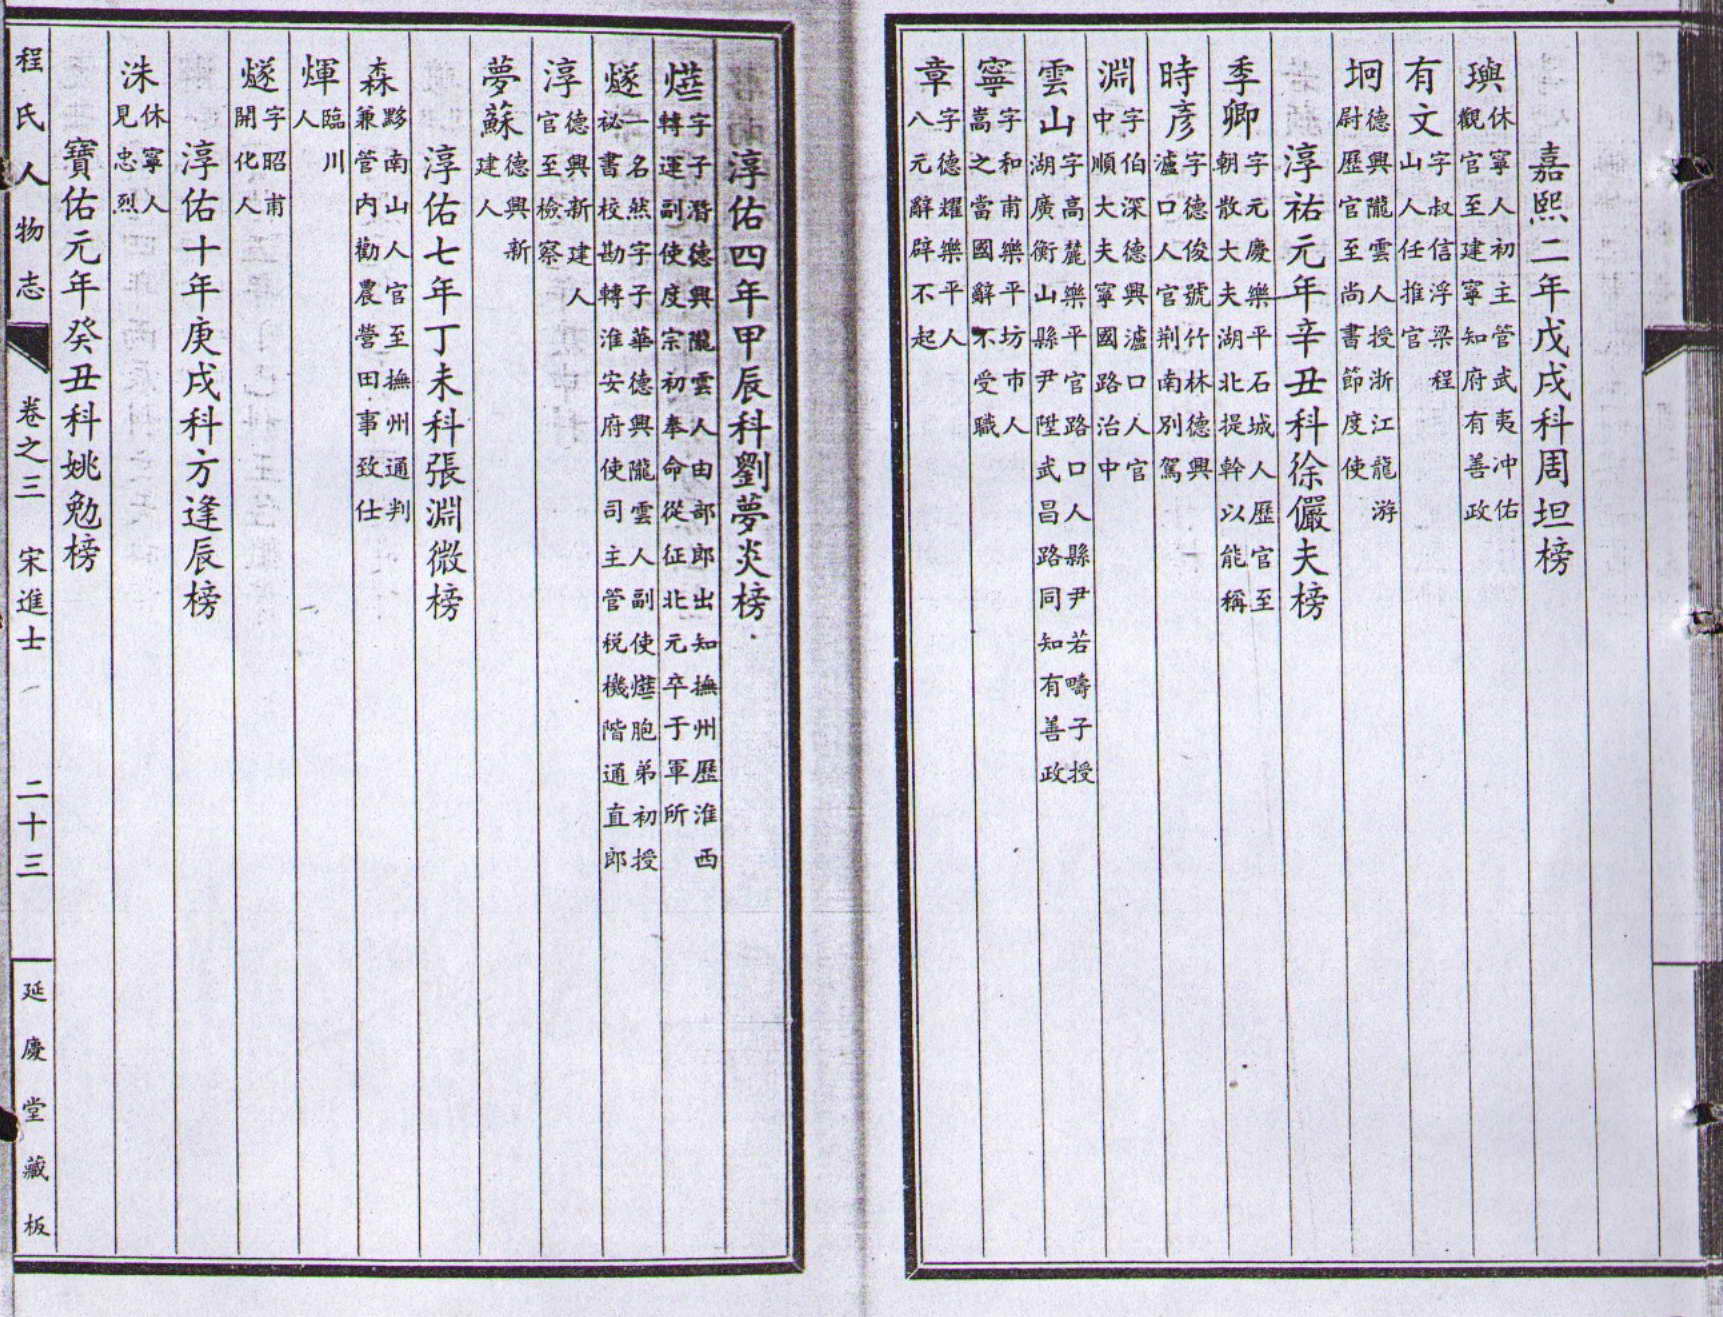 嘉熙二年戊戌科周坦榜
璵 休寧人初主管武夷冲佑
觀官至建寧知府有善政
有文 字叔信浮梁程
山人任推官
坰 德興隴雲人授浙江龍游
尉歷官至尚書節度使
淳祐元年辛丑科徐儼夫榜
季卿 字元慶樂平石城人歷官至
朝散大夫湖北提幹以能稱
時彥 字德俊號竹林德興
瀘口人官荆南別駕
淵 字伯深德興瀘口人官
中順大夫寧國路治中
雲山 字高麓樂平官路口人縣尹若疇子授
湖廣衡山縣尹陞武昌路同知有善政
寧 字和甫樂平坊市人
嵩之當國辭不受職
章 字德耀樂平人
八元辭辟不起
淳佑四年甲辰科劉夢炎榜
字子潛德興隴雲人由部郎出知撫州歷淮西
轉運副使度宗初奉命從征北元卒于軍所
燧 一名然字子華德興隴雲人副使胞弟初授
祕書校勘轉淮安府使司主管税機階通直郎
淳 德興新建人
官至檢察
夢蘇 德興新
建人
淳佑七年丁未科張淵微榜
森 黟南山人官至撫州通判
兼管内勸農營田事致仕
煇 臨川
人
燧 字昭甫
開化人
淳佑十年庚戌科方逢辰榜
洙 休寧人
見忠烈
寶佑元年癸丑科姚勉榜
程氏人物志 卷之三 宋進士 二十三 延慶堂藏板